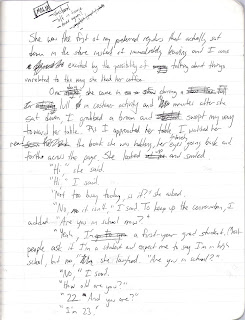 She was the first of my preferred regulars that actually sat
down in the store instead of immediately leaving and I was
excited by the possibility of talking about things
unrelated to the way she had her coffee.
One she came in during a
lull in customer activity and minutes after she
sat down, I grabbed a broom and swept my way
toward her table. As I approached her table, I watched her
read the book she was holding, her eyes going back and
forth across the page. She looked and smiled.
"Hi," she said.
"Hi," I said.
"Not too busy today, is it?" she asked.
"No, it isn't," I said. To keep up the conversation, I
added "Are you in school now?"
"Yeah, I'm a first-year grad student. Most
people ask if I'm a student and expect me to say I'm in high
school, but no," she laughed. "Are you in school?"
"No," I said.
"How old are you?"
"22. And you are?"
"I'm 23."